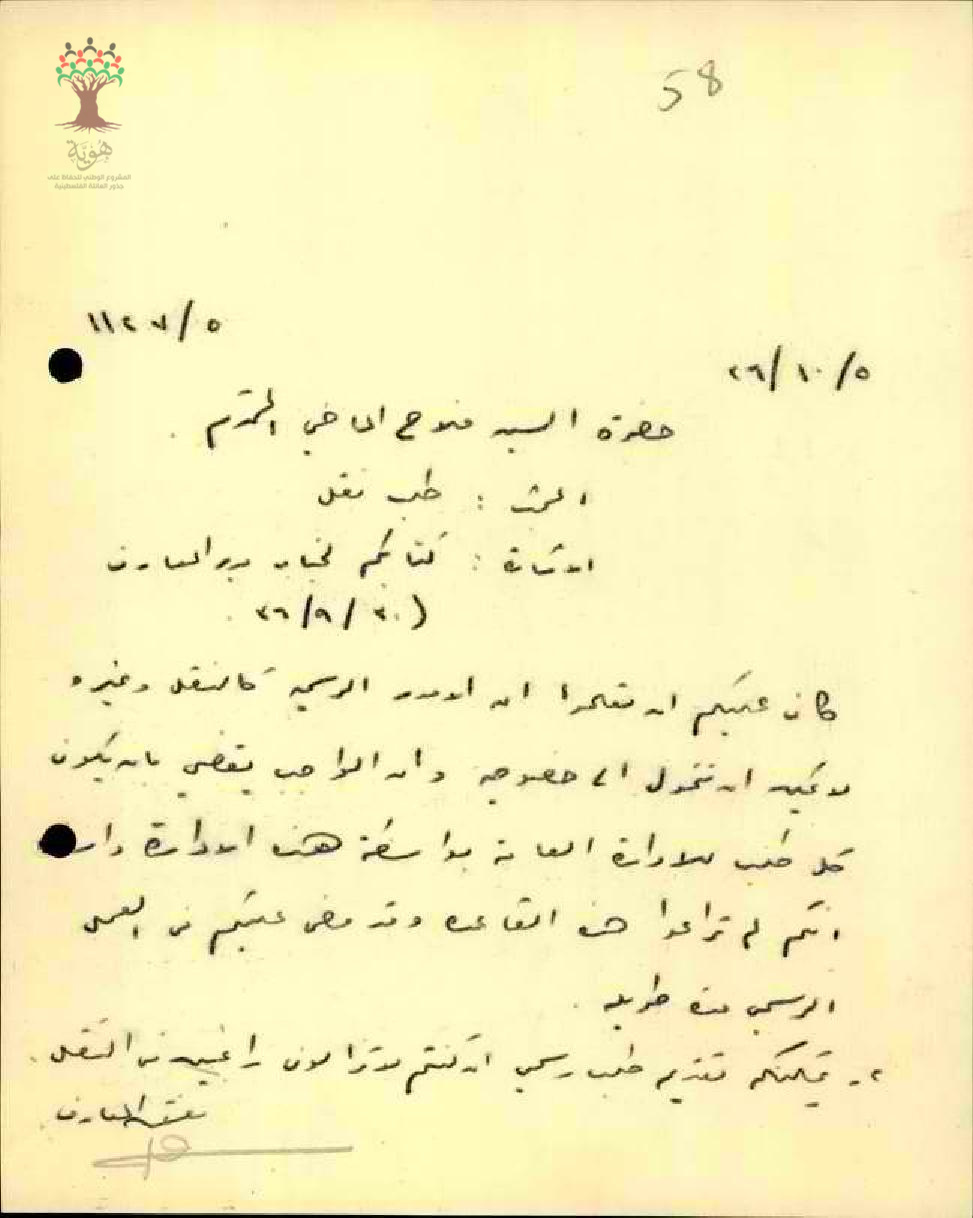 58
هوية
المشروع الوطني للحفاظ على
جذور العائلة الفلسطينية
١١٢٧/٥
٢٦/١٠/٥
حضرة السيد فلاح الماضي المحترم .
البحث : طلب نقل
الاشارة : كتابكم لجناب مدير المعارف
(٣٠/٩/٣٦ .
كان عليكم ان تعلموا ان الامور الرسمية كالنقل وغيره
لا يمكن ان تتحول الى خصوصية وان الواجب يقضي بان يكون
كل طلب للادارة العامة بواسطة هذه الادارة
انكم لم تراعوا هذه القاعدة وقد مضى عليكم في العمل
الرسمي مدة طويلة .
٢ـ يمكنكم تقديم طلب رسمي ان كنتم لا تزالون راغبين في النقل .
مفتش المعارف